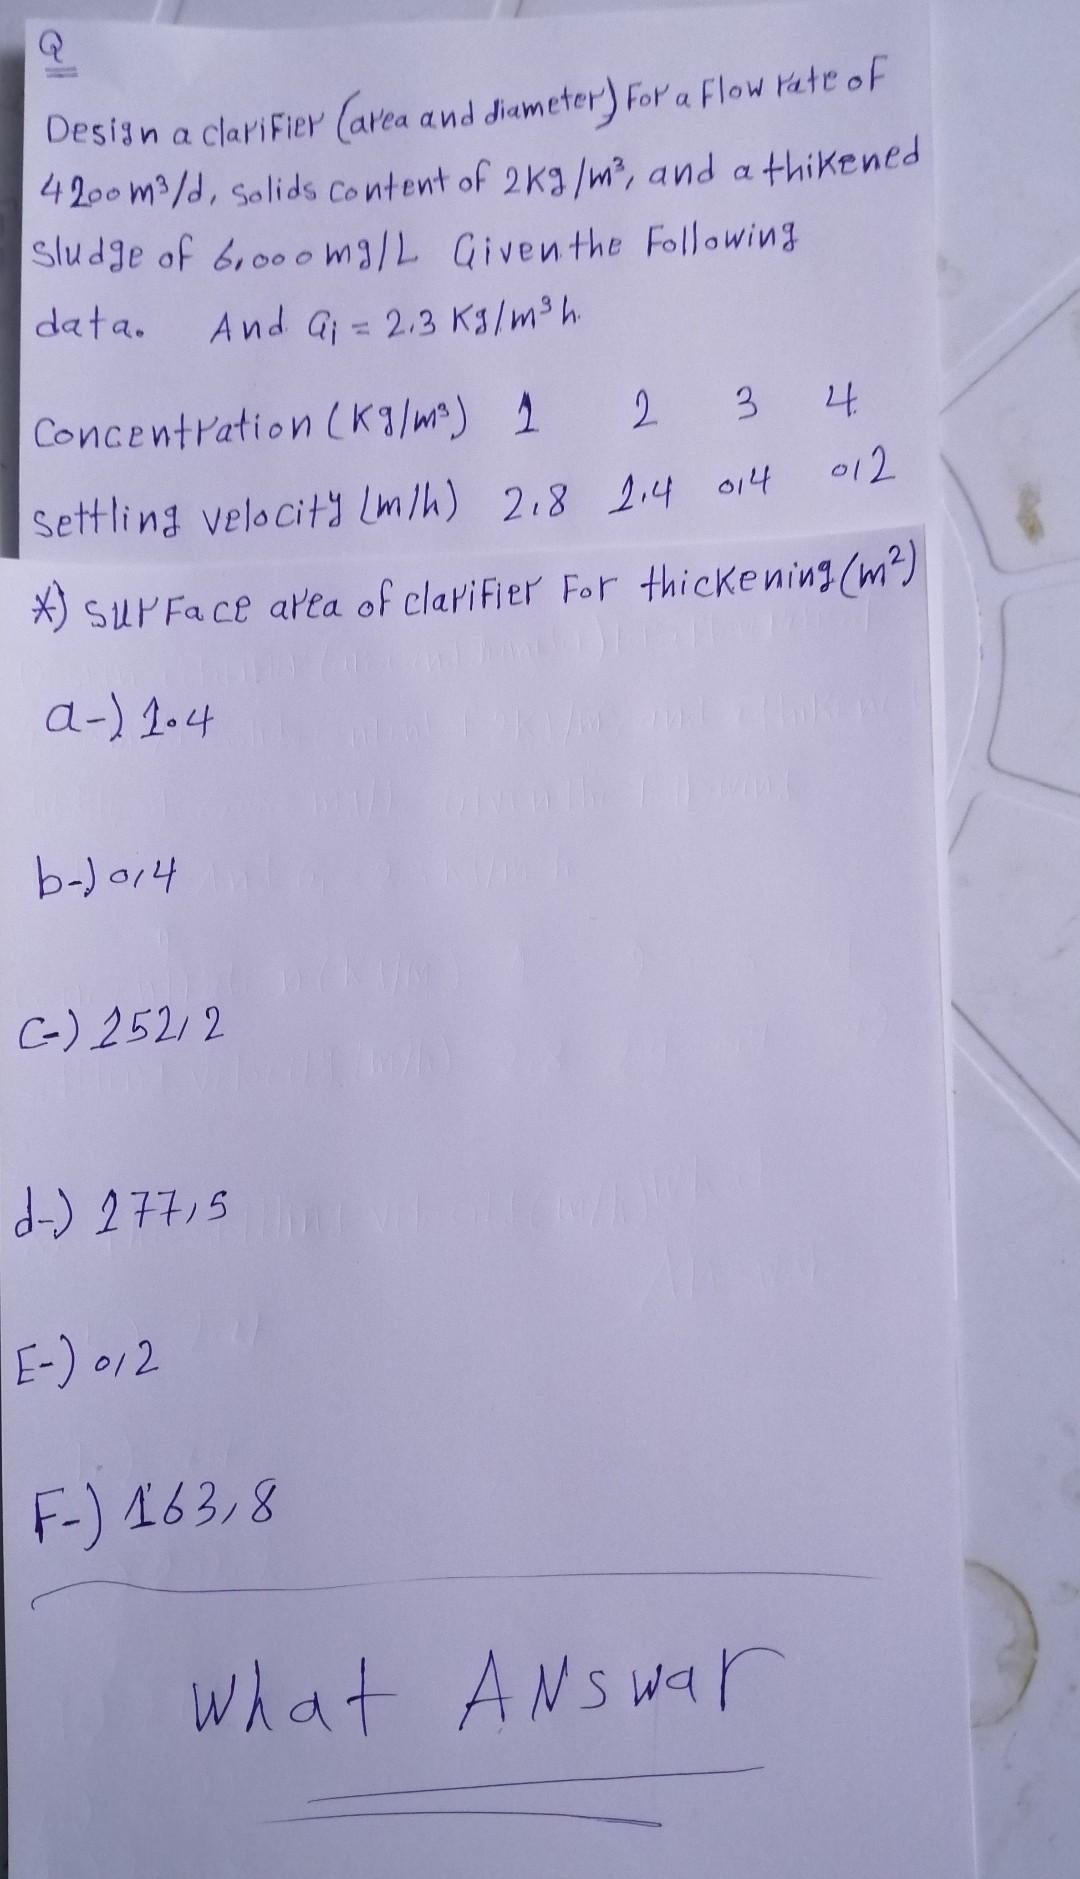 Q
Design a clarifier (area and diameter) For a Flow rate of
4200 m³/d, Solids content of 2Kg/m³, and a thikened
sludge of 6,000 mg/L Given the Following
data. And Gi = 2.3 Kg/m³h.
Concentration (Kg/m³) 1 2 3 4
settling velocity (m/h) 2,8 1.4 0,4 0,2
*) surface area of clarifier For thickening (m²)
a-) 1.4
b-) 0,4
C-) 152,2
d-) 177,5
E-) 0,2
F-) 163,8
What ANswar